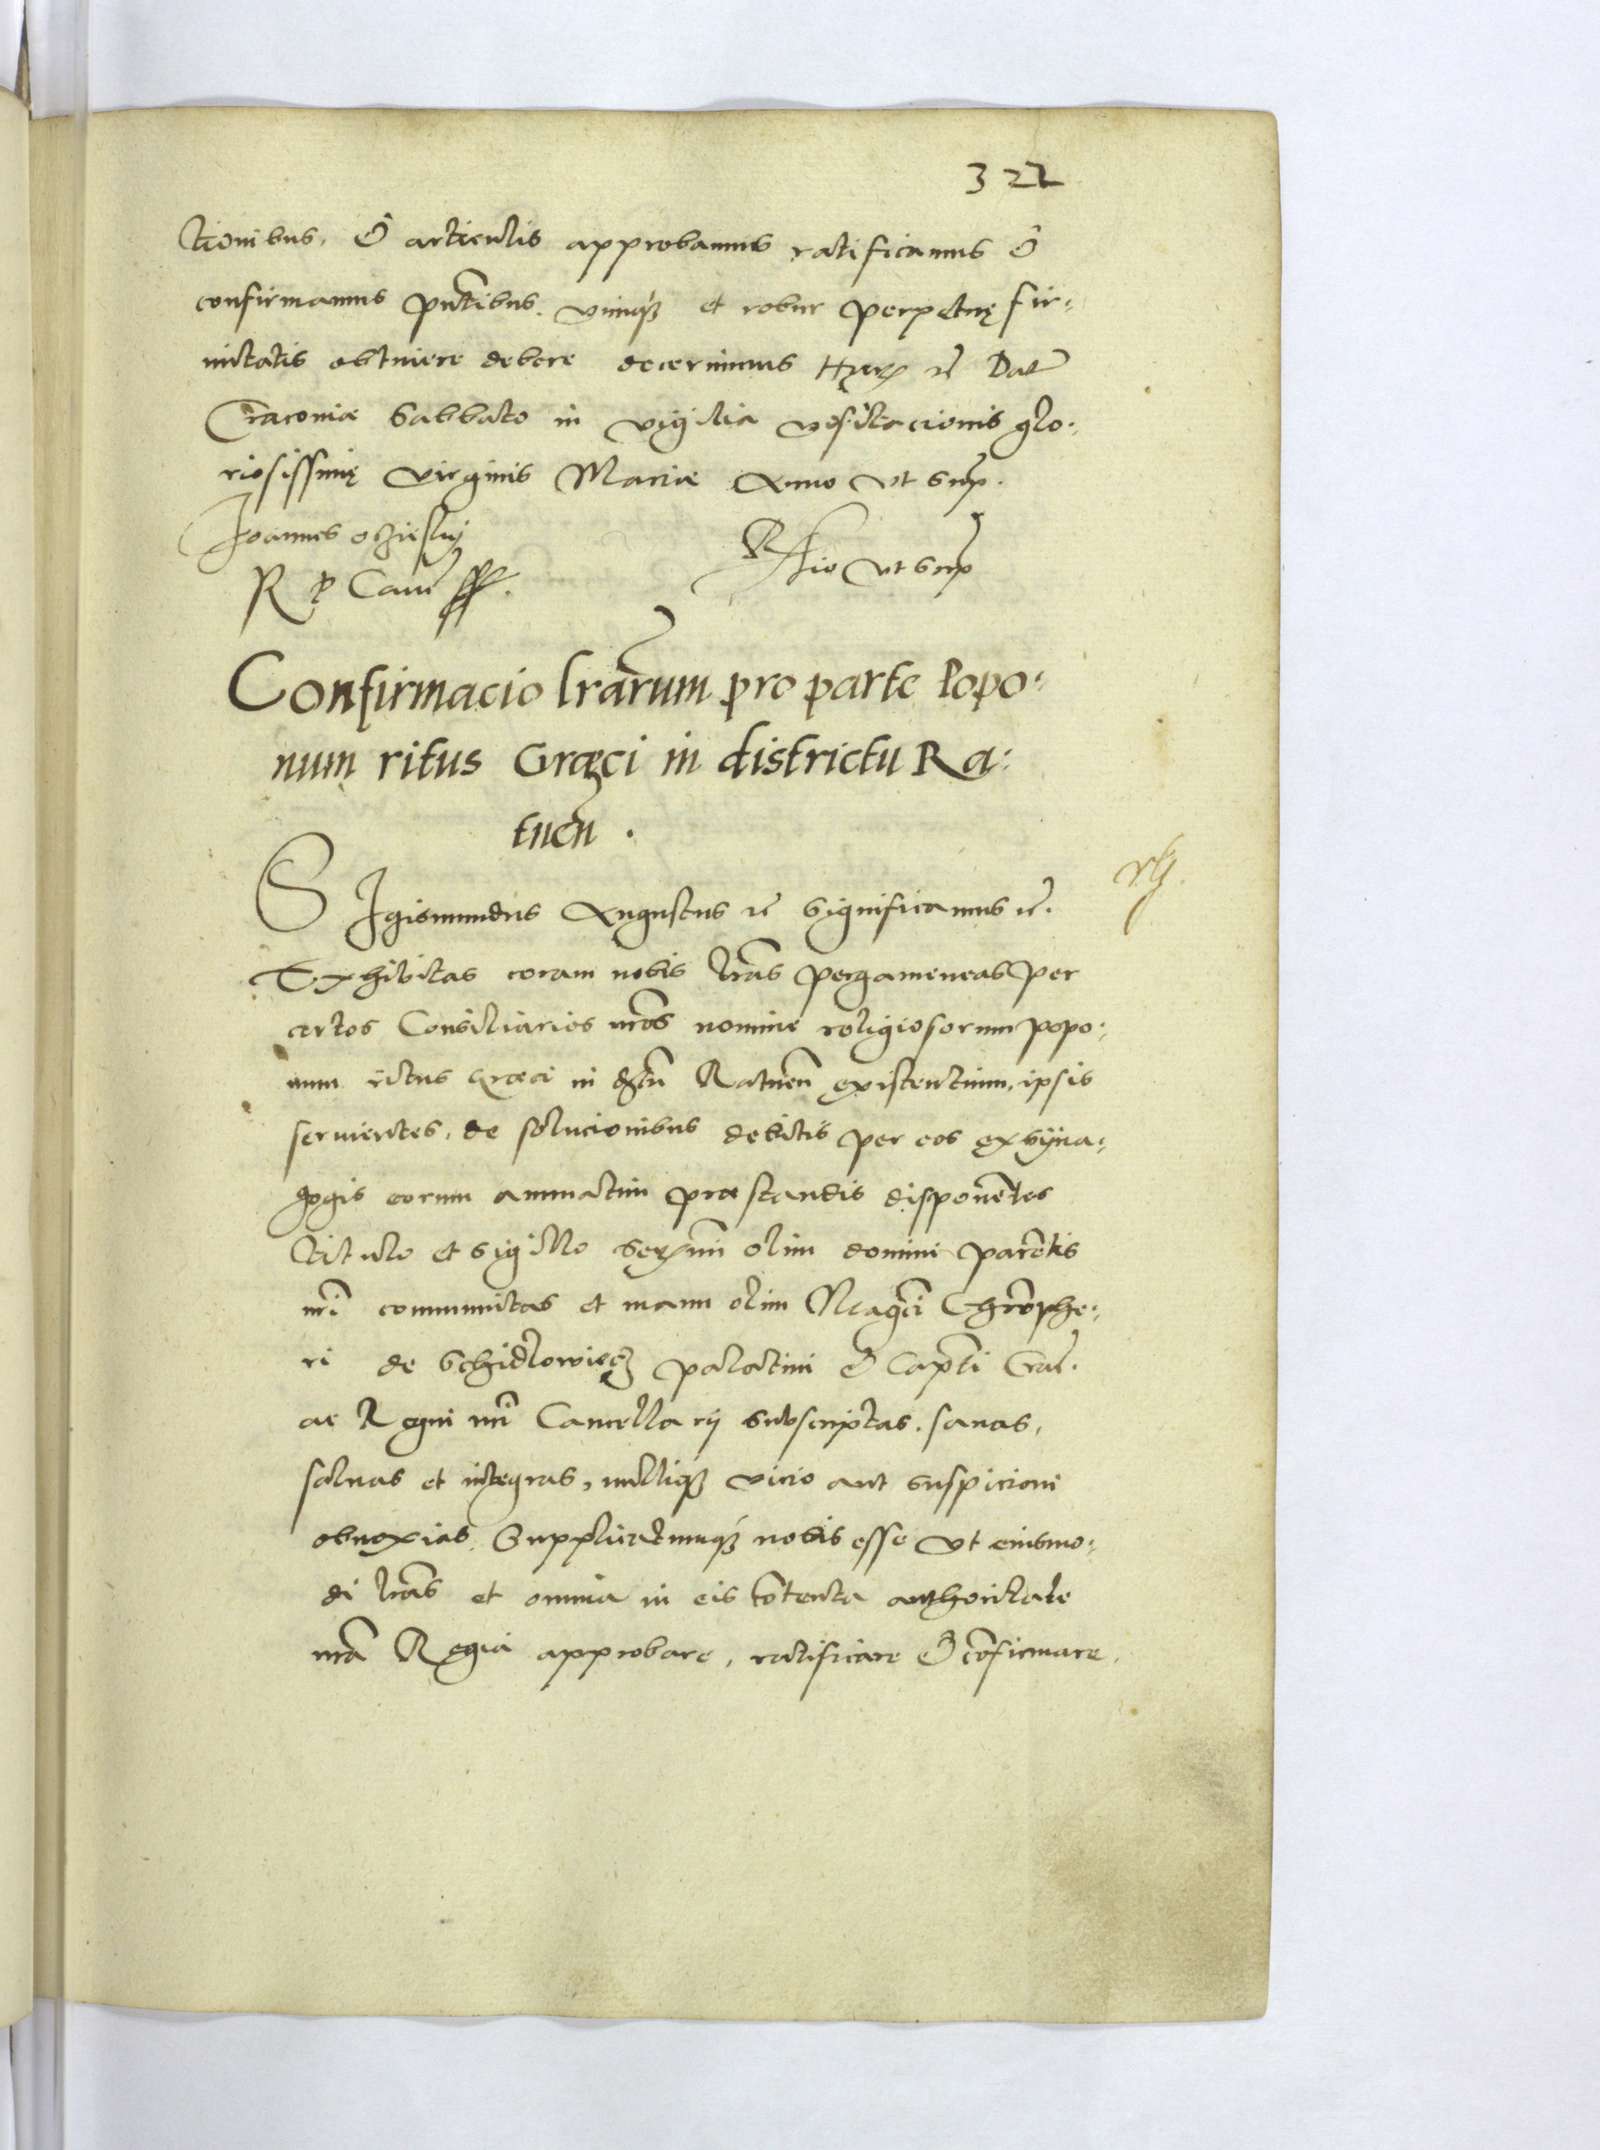 322
ctionibus, & articulis approbamus ratificamus &
confirmamus pñtibus. vimq3 et robur perpetuę fir:
mitatis obtinere debere decernimus Harũ rē Datū
Cracoviæ Sabbato in vigilia visitacionis glo:
riosissimę virginis Mariæ Anno vt supra.
Joannes oczieskij
R P Canc̄
Rłio vt supra
Confirmacio lrārum pro parte Popo:
num ritus Græci in districtu Ra:
tneñ.
SIgismundus Augustus rē significamus rē.
Exhibitas coram nobis lrās pergameneas per
certos Consiliarios nrōs nomine religiosorum popo:
num ritus græci in dstū Ratneñ existentium, ipsis
servientes, de solucionibus debitis per eos ex syna:
gogis eorum annuatim præstandis disponentes
titulo et sigillo serẽmi olim domini parentis
nrī communitas et manu olim Magci Chrõphe:
ri de Schidlowiecz palatini & Capti Crac̄.
ac Regni nrī Cancellarij subscriptas. sanas,
salvas et integras, nulliq3 vicio aut suspicioni
obnoxias. Supplicatumq3 nobis esse vt eiusmo:
di lrās et omnia in eis cōtenta authoritate
nrā Regia approbare, ratificare & cōfirmare